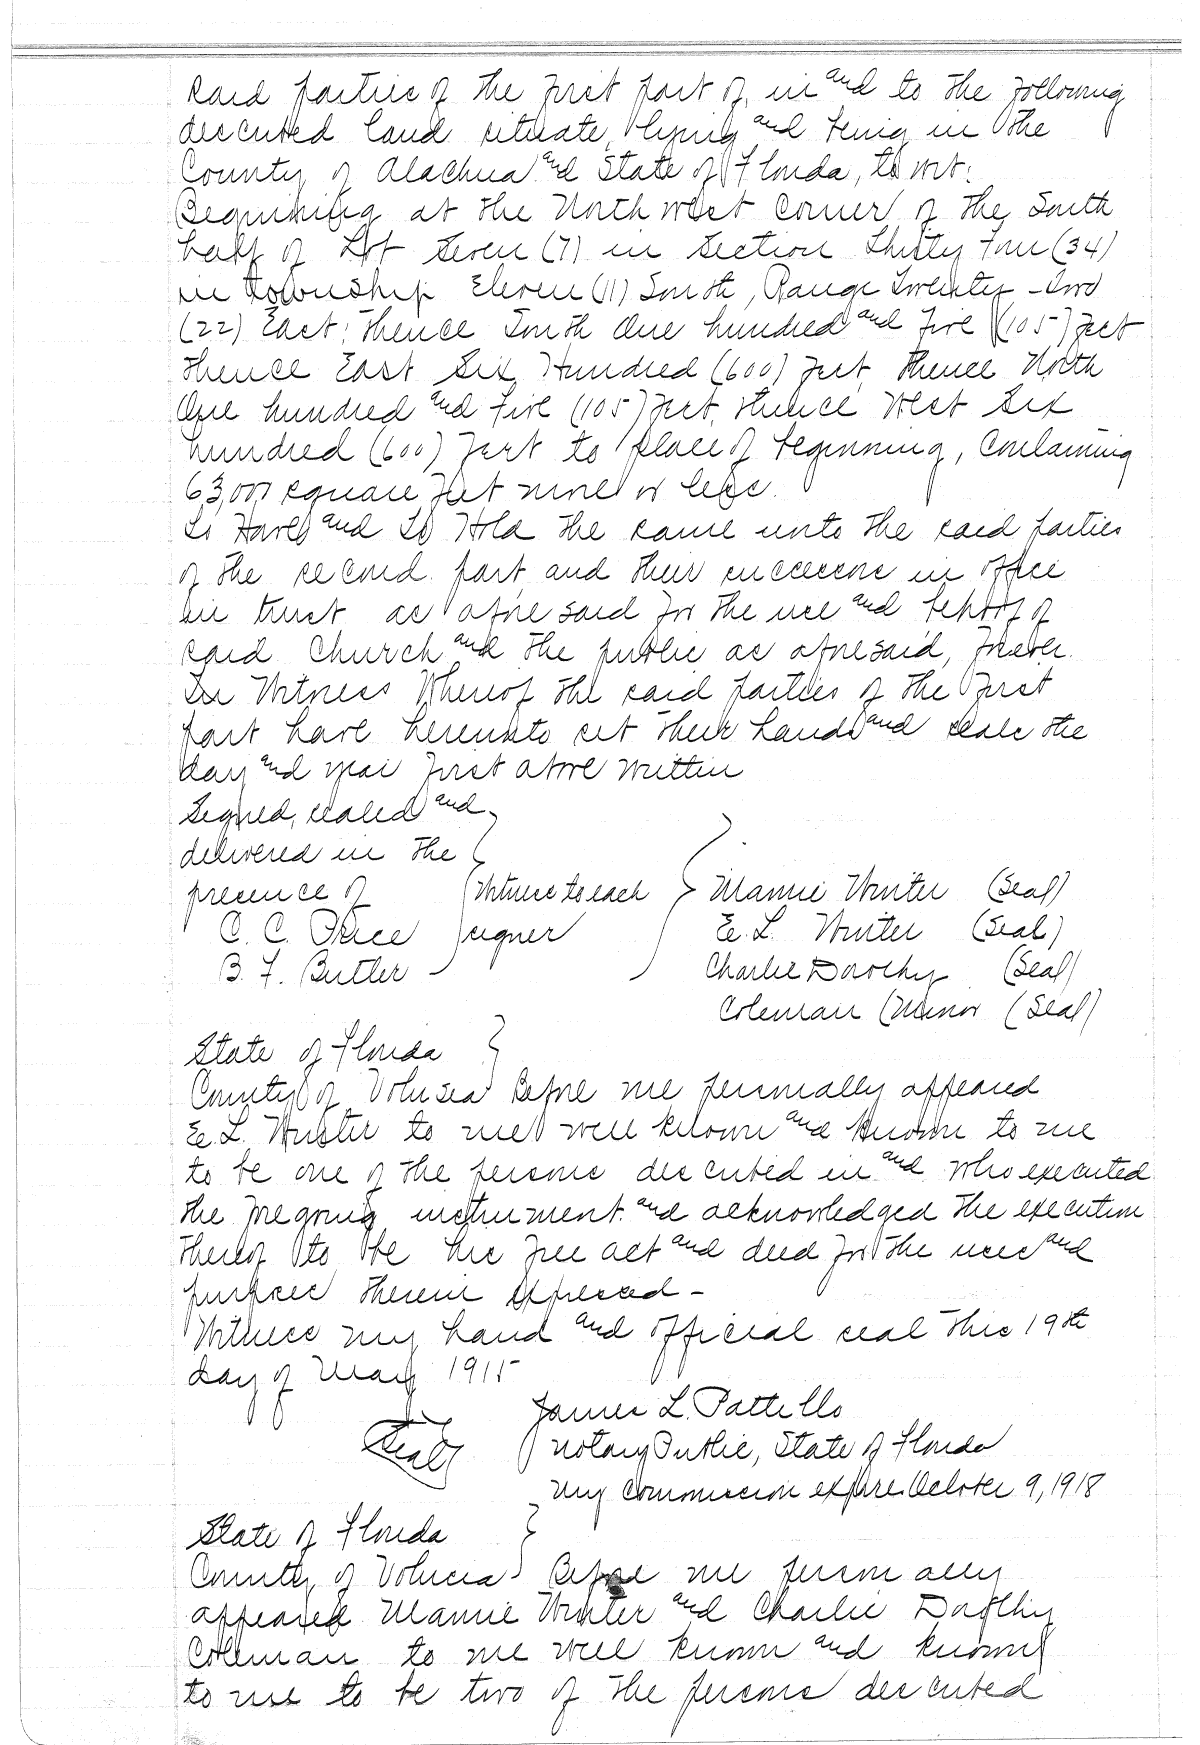 said parties of the first part of, in and to the following
described land situate, lying and being in the
County of Alachua and State of Florida, to wit:
Beginning at the North west corner of the South
half of Lot Seven (7) in Section Thirty Four (34)
in township Eleven (11) South, Range Twenty-Two
(22) East; thence South One hundred and five (105) feet
thence East Six Hundred (600) feet, thence North
One hundred and five (105) feet, thence West Six
hundred (600) feet to place of beginning, Containing
63,000 square feet more or less.
To Have and To Hold the same unto the said parties
of the second part, and their successors in office
in trust as afore said for the use and behoof of
said Church and the public as aforesaid, forever.
In Witness Whereof the said parties of the First
part have hereunto set their hands and seals the
day and year first above written
Signed, sealed and
delivered in the
presence of (Witness to each Mannie Winter (Seal)
C. C. Price signer E. L. Winter (Seal)
B. F. Butler Charlie Dorothy (Seal)
Coleman (Minor (Seal)
State of Florida
County of Volusia Before me personally appeared
E. L. Winter to me well known and known to me
to be one of the persons described in and who executed
the foregoing instrument and acknowledged the execution
thereof to be his free act and deed for the uses and
purposes therein expressed -
Witness my hand and official seal this 19th
day of May 1915
James L. Pattillo
(Seal) Notary Public, State of Florida
my commission expires October 9, 1918
State of Florida
County of Volusia Before me personally
appeared Mannie Winter and Charlie Dorothy
Coleman to me well known and known
to me to be two of the persons described